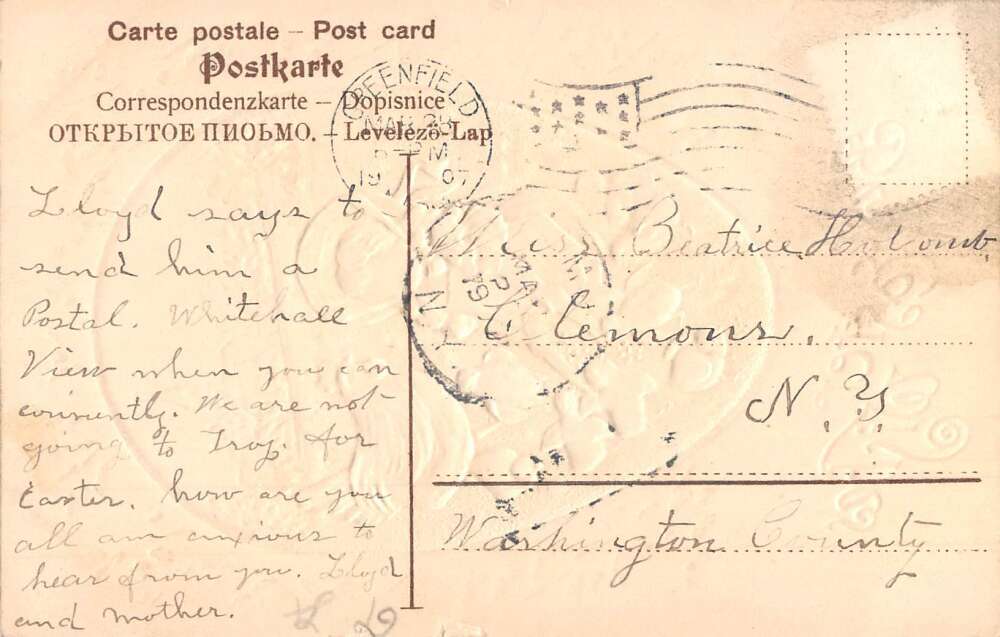 Carte postale – Post card
Postkarte
Correspondenzkarte – Dopisnice
ОТКРЫТОЕ ПИОЬМО. – Levelező-Lap
GREENFIELD
MAR 28
PM
1907
Lloyd says to
send him a
Postal. Whitehall
View when you can
coninently. We are not
going to Troy. for
Easter. how are you
all am anxious to
hear from you. Lloyd
and mother.
Miss Beatrice Holcomb
Clemons.
N. Y.
Washington County
N
MA
2
19
M